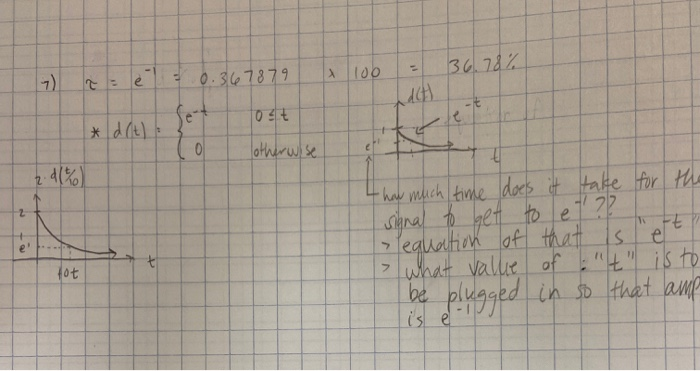 7) τ = e^-1 = 0.367879 x 100 = 36.78%
* d(t) = { e^-t 0 ≤ t
0 otherwise
d(t)
e^-t
1
e^-1
t
2·d(t/10)
2
e^-1
10t
t
how much time does it take for the
signal to get to e^-1??
> equation of that is "e^-t"
> what value of : "t" is to
be plugged in so that amp
is e^-1